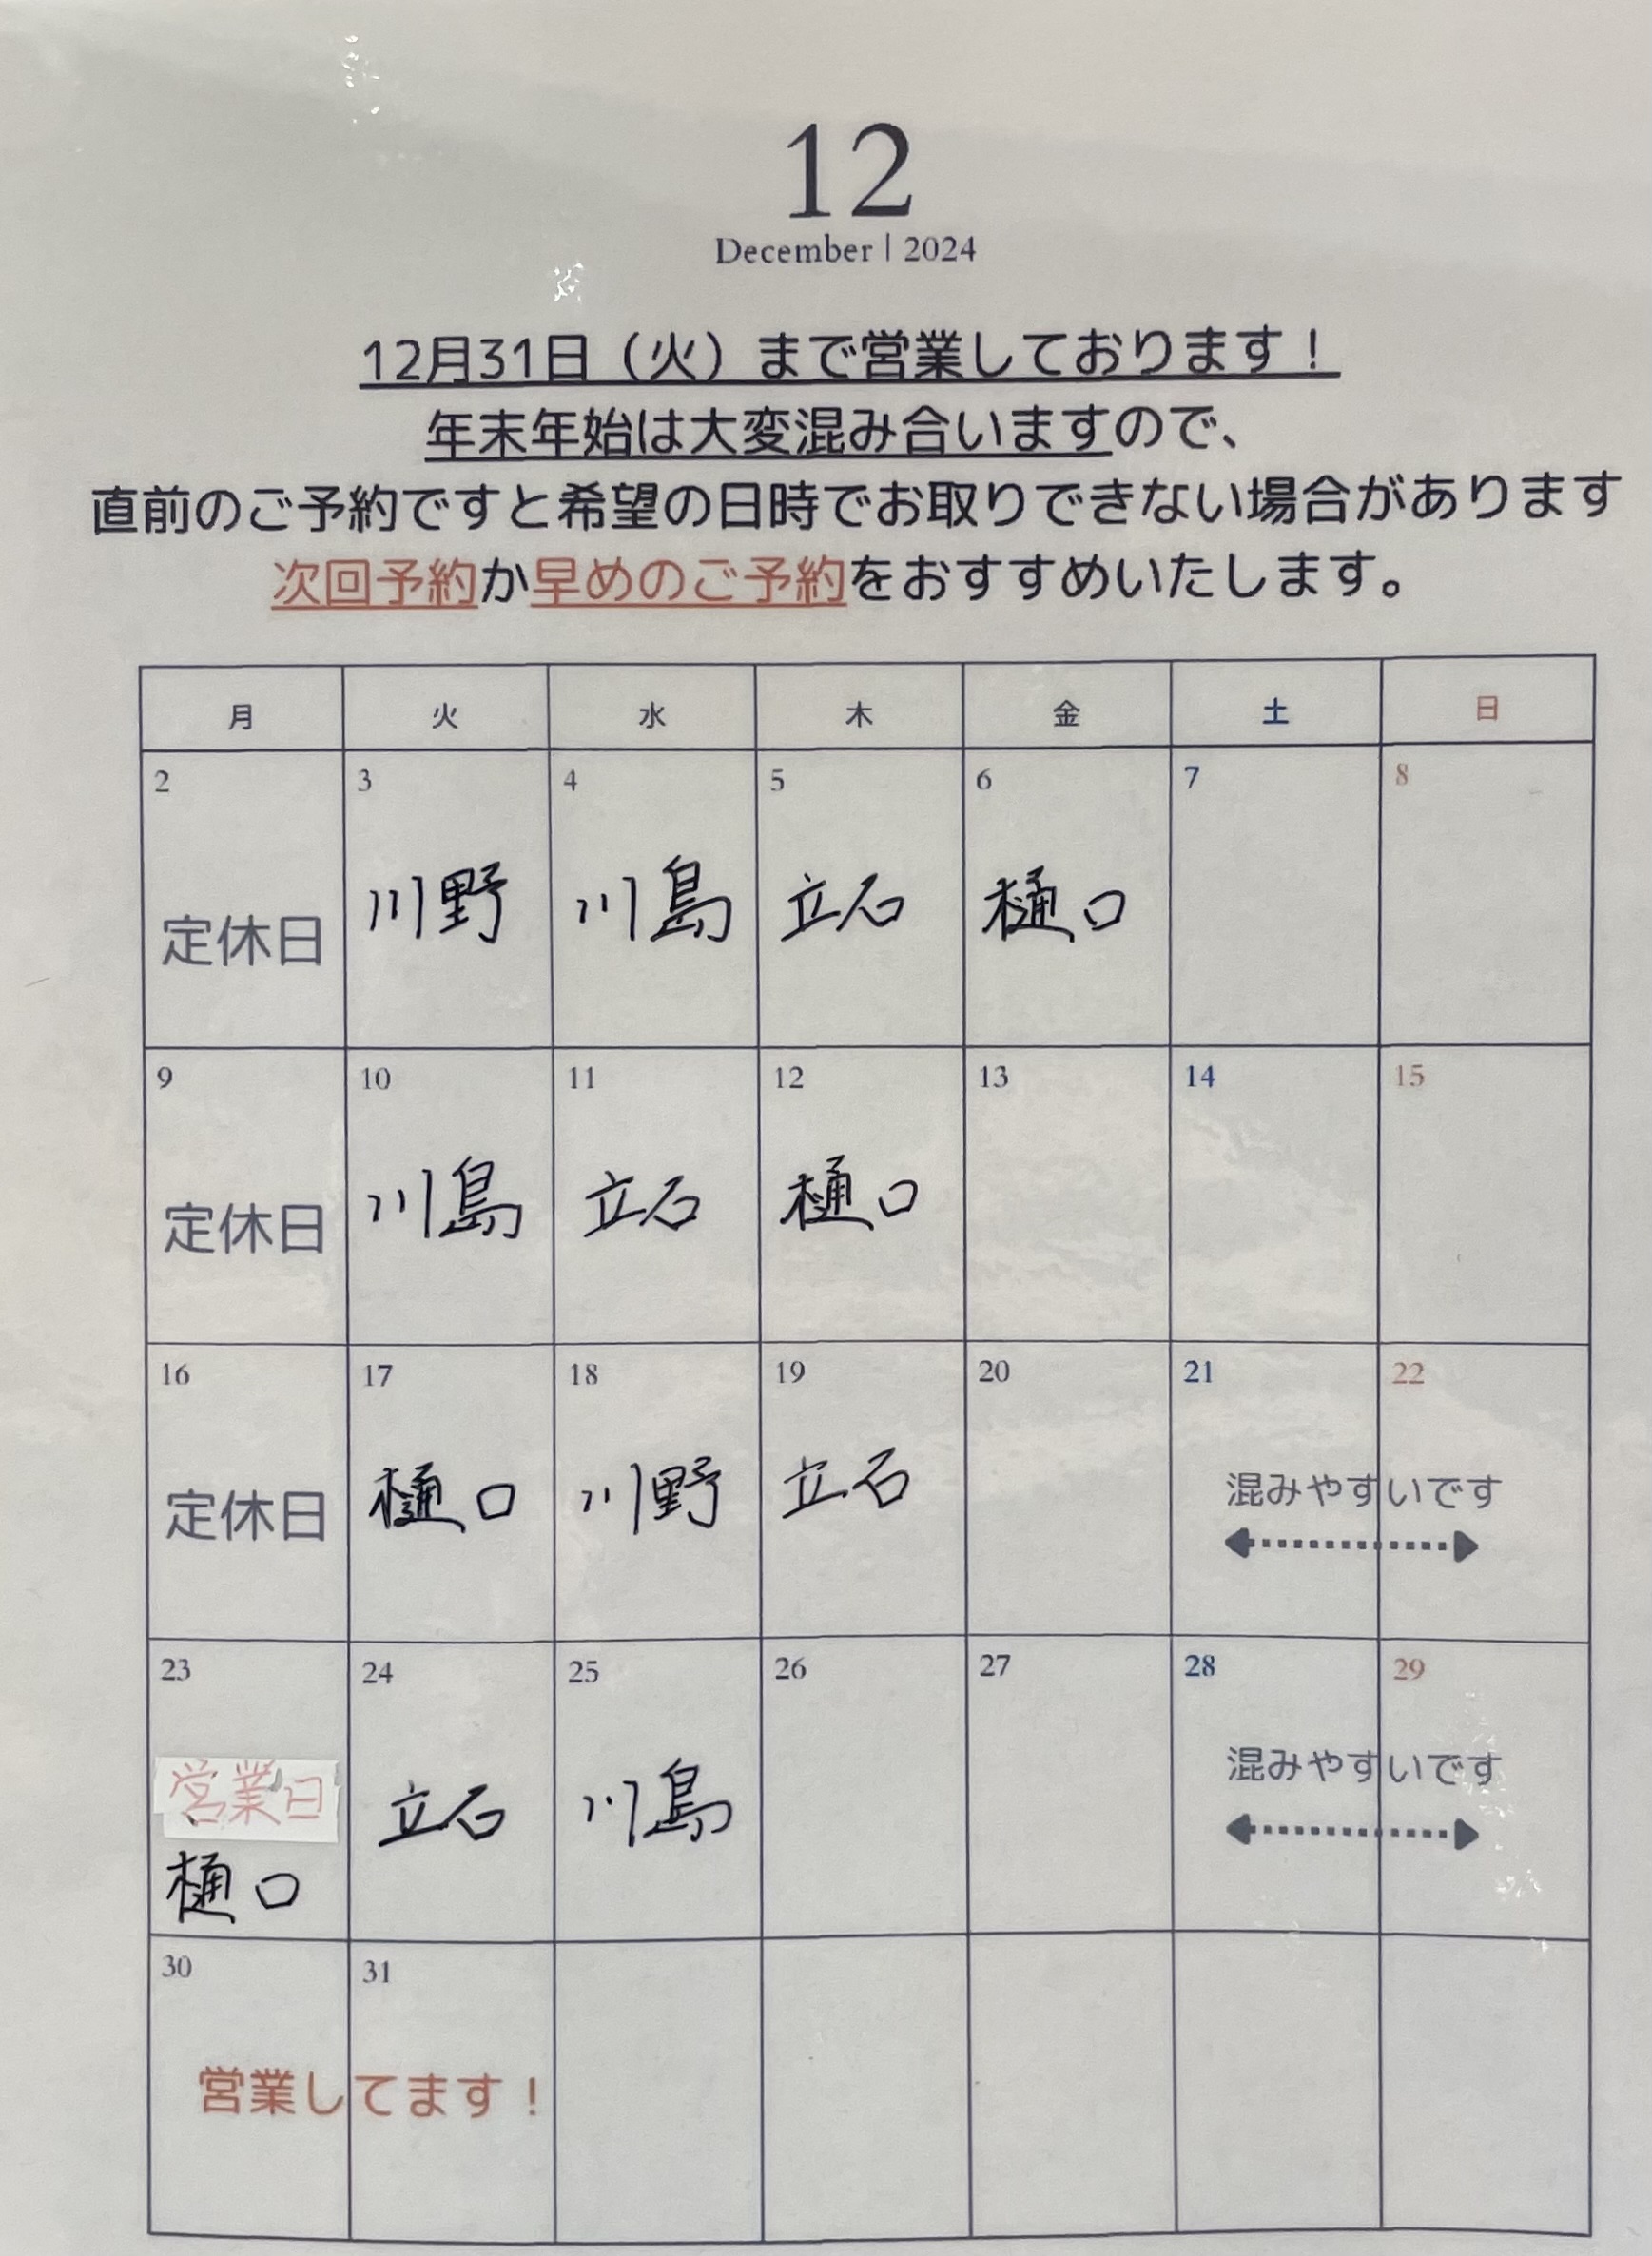 12
December | 2024
12月31日（火）まで営業しております！
年末年始は大変混み合いますので、
直前のご予約ですと希望の日時でお取りできない場合があります
次回予約か早めのご予約をおすすめいたします。
月 火 水 木 金 土 日
2 3 4 5 6 7 8
定休日 川野 川島 立石 樋口
9 10 11 12 13 14 15
定休日 川島 立石 樋口
16 17 18 19 20 21 22
定休日 樋口 川野 立石 混みやすいです
23 24 25 26 27 28 29
営業日 立石 川島 混みやすいです
樋口
30 31
営業してます！